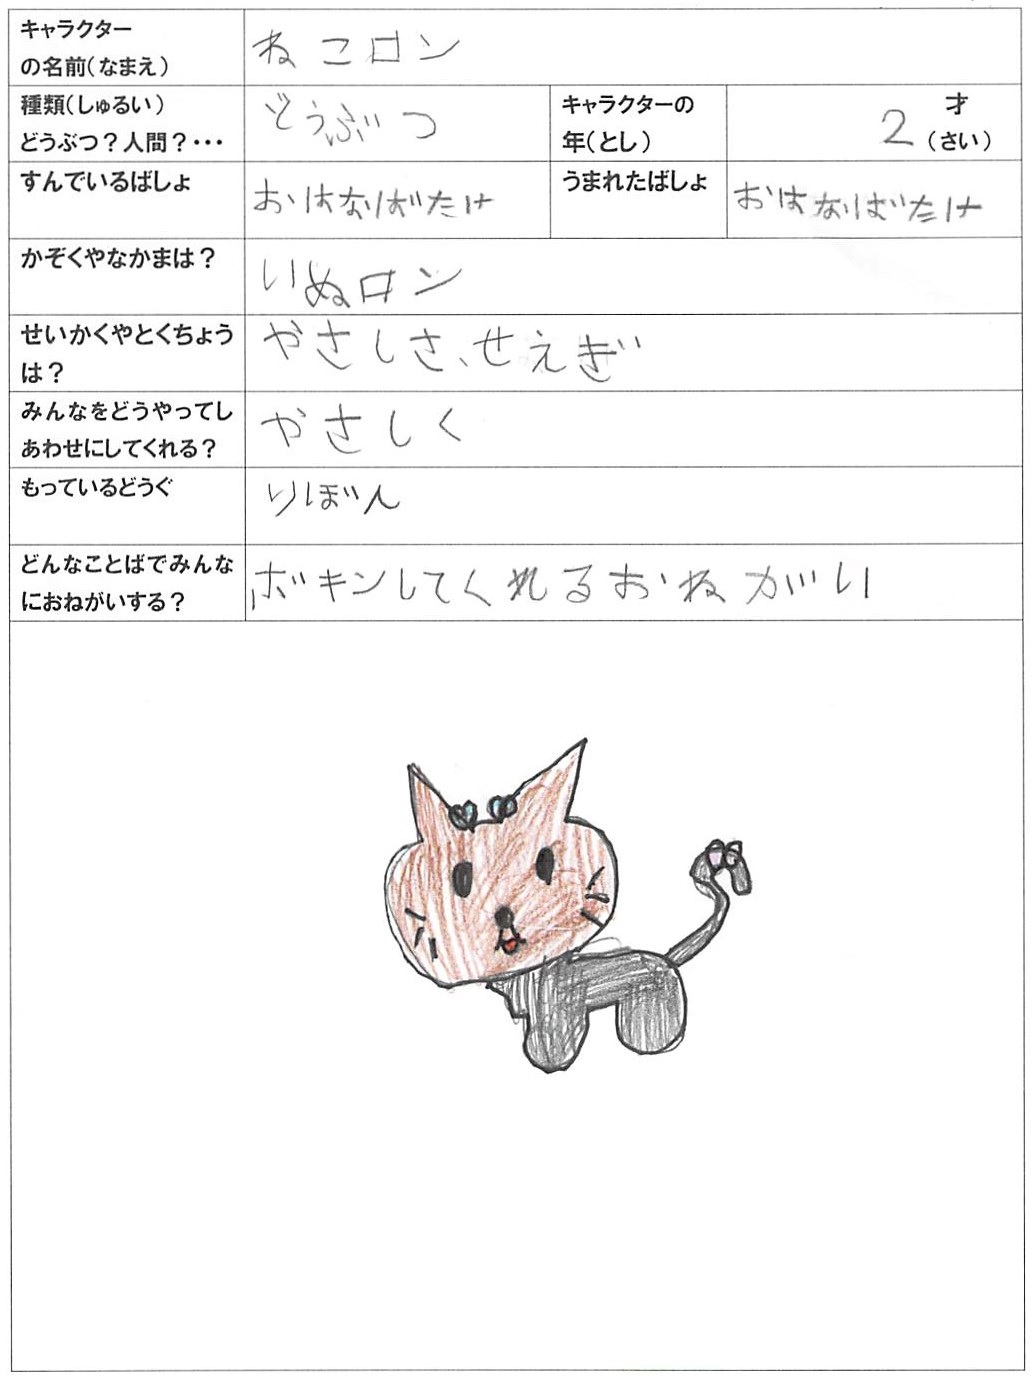 キャラクター
の名前(なまえ)
ねこロン
種類(しゅるい)
どうぶつ?人間?・・・
どうぶつ
キャラクターの
年(とし)
2
才
(さい)
すんでいるばしょ
おはなばたけ
うまれたばしょ
おはなばたけ
かぞくやなかまは?
いぬロン
せいかくやとくちょう
は?
やさしさ、せえぎ
みんなをどうやってし
あわせにしてくれる?
やさしく
もっているどうぐ
りぼん
どんなことばでみんな
におねがいする?
ボキンしてくれるおねがい